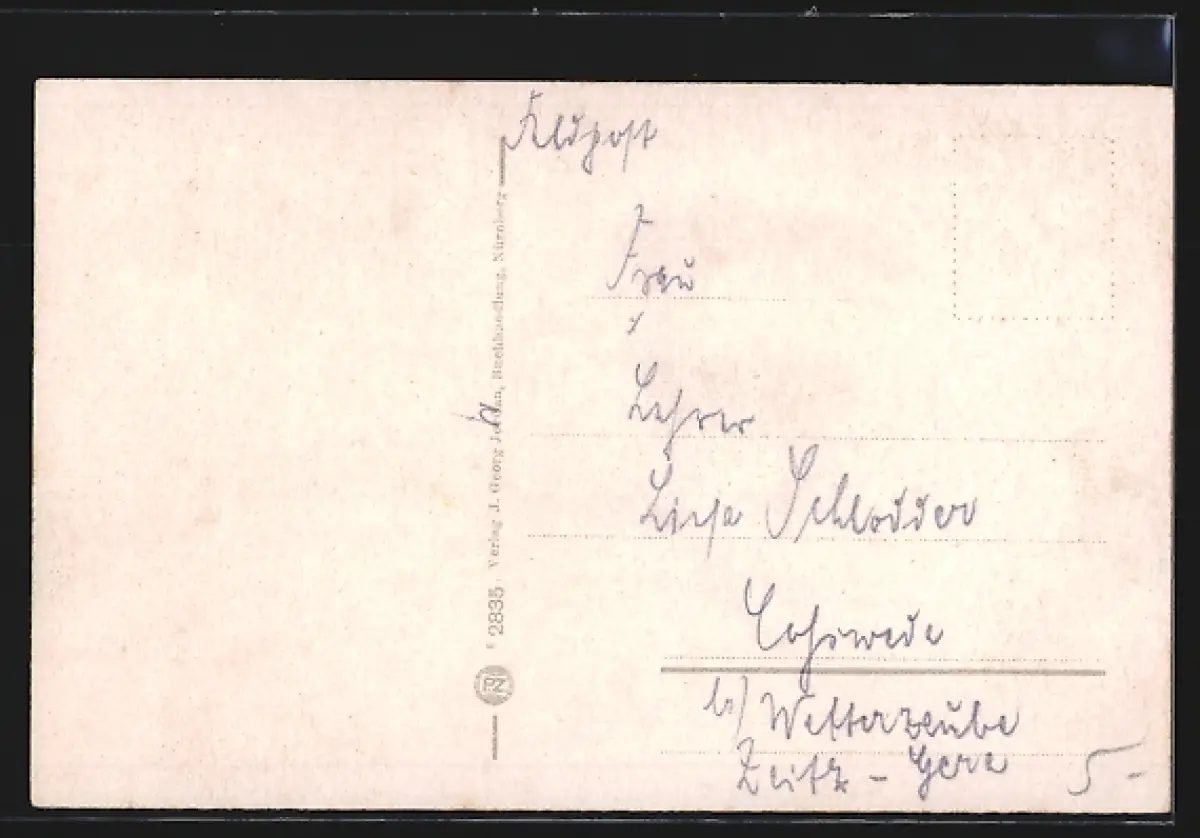 Feldpost
Frau
Lehrer
Liesa Schlodder
b/ Wetterzeube
Zeitz - Gera
5 -
2835 Verlag J. Georg Jordan, Buchhandlung, Nürnberg
PZ